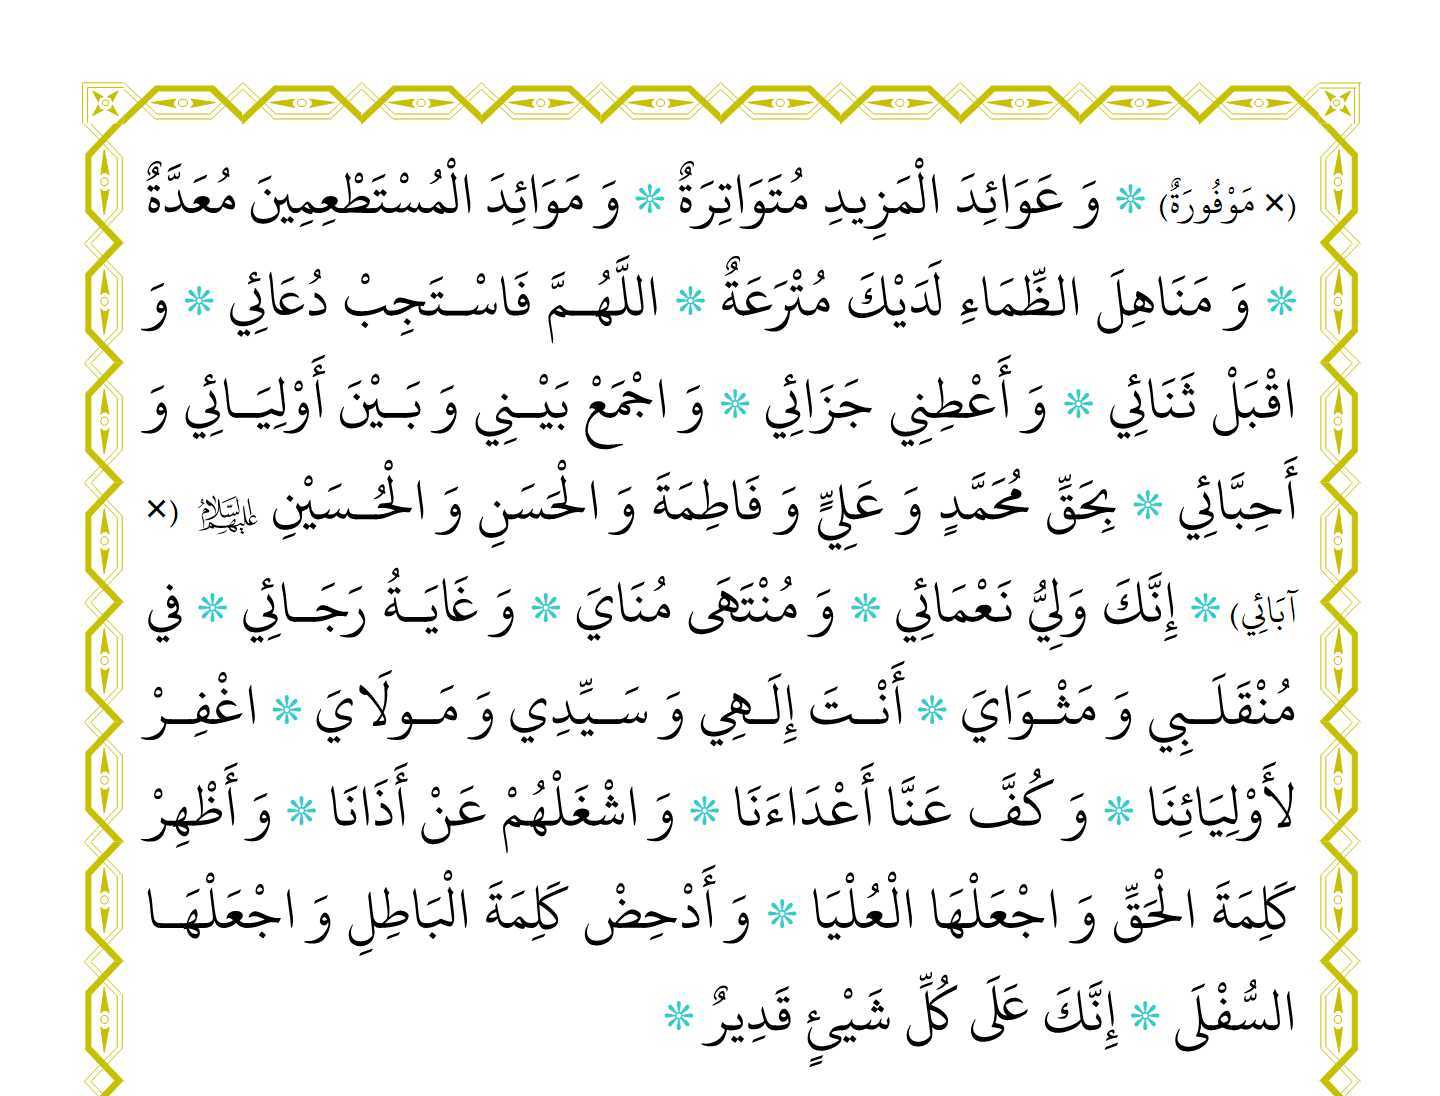 (× مَوْفُورَةٌ) ❊ وَ عَوَائِدَ الْمَزِيدِ مُتَوَاتِرَةٌ ❊ وَ مَوَائِدَ الْمُسْتَطْعِمِينَ مُعَدَّةٌ
❊ وَ مَنَاهِلَ الظِّمَاءِ لَدَيْكَ مُتْرَعَةٌ ❊ اللَّهُـمَّ فَاسْـتَجِبْ دُعَائِي ❊ وَ
اقْبَلْ ثَنَائِي ❊ وَ أَعْطِنِي جَزَائِي ❊ وَ اجْمَعْ بَيْـنِي وَ بَـيْنَ أَوْلِيَـائِي وَ
أَحِبَّائِي ❊ بِحَقِّ مُحَمَّدٍ وَ عَلِيٍّ وَ فَاطِمَةَ وَ الْحَسَنِ وَ الْحُـسَيْنِ عليهم السلام (×
آبَائِي) ❊ إِنَّكَ وَلِيُّ نَعْمَائِي ❊ وَ مُنْتَهَى مُنَايَ ❊ وَ غَايَـةُ رَجَـائِي ❊ فِي
مُنْقَلَـبِي وَ مَثْـوَايَ ❊ أَنْـتَ إِلَـهِي وَ سَـيِّدِي وَ مَـولَايَ ❊ اغْفِـرْ
لأَوْلِيَائِنَا ❊ وَ كُفَّ عَنَّا أَعْدَاءَنَا ❊ وَ اشْغَلْهُمْ عَنْ أَذَانَا ❊ وَ أَظْهِرْ
كَلِمَةَ الْحَقِّ وَ اجْعَلْهَا الْعُلْيَا ❊ وَ أَدْحِضْ كَلِمَةَ الْبَاطِلِ وَ اجْعَلْهَـا
السُّفْلَى ❊ إِنَّكَ عَلَى كُلِّ شَيْئٍ قَدِيرٌ ❊